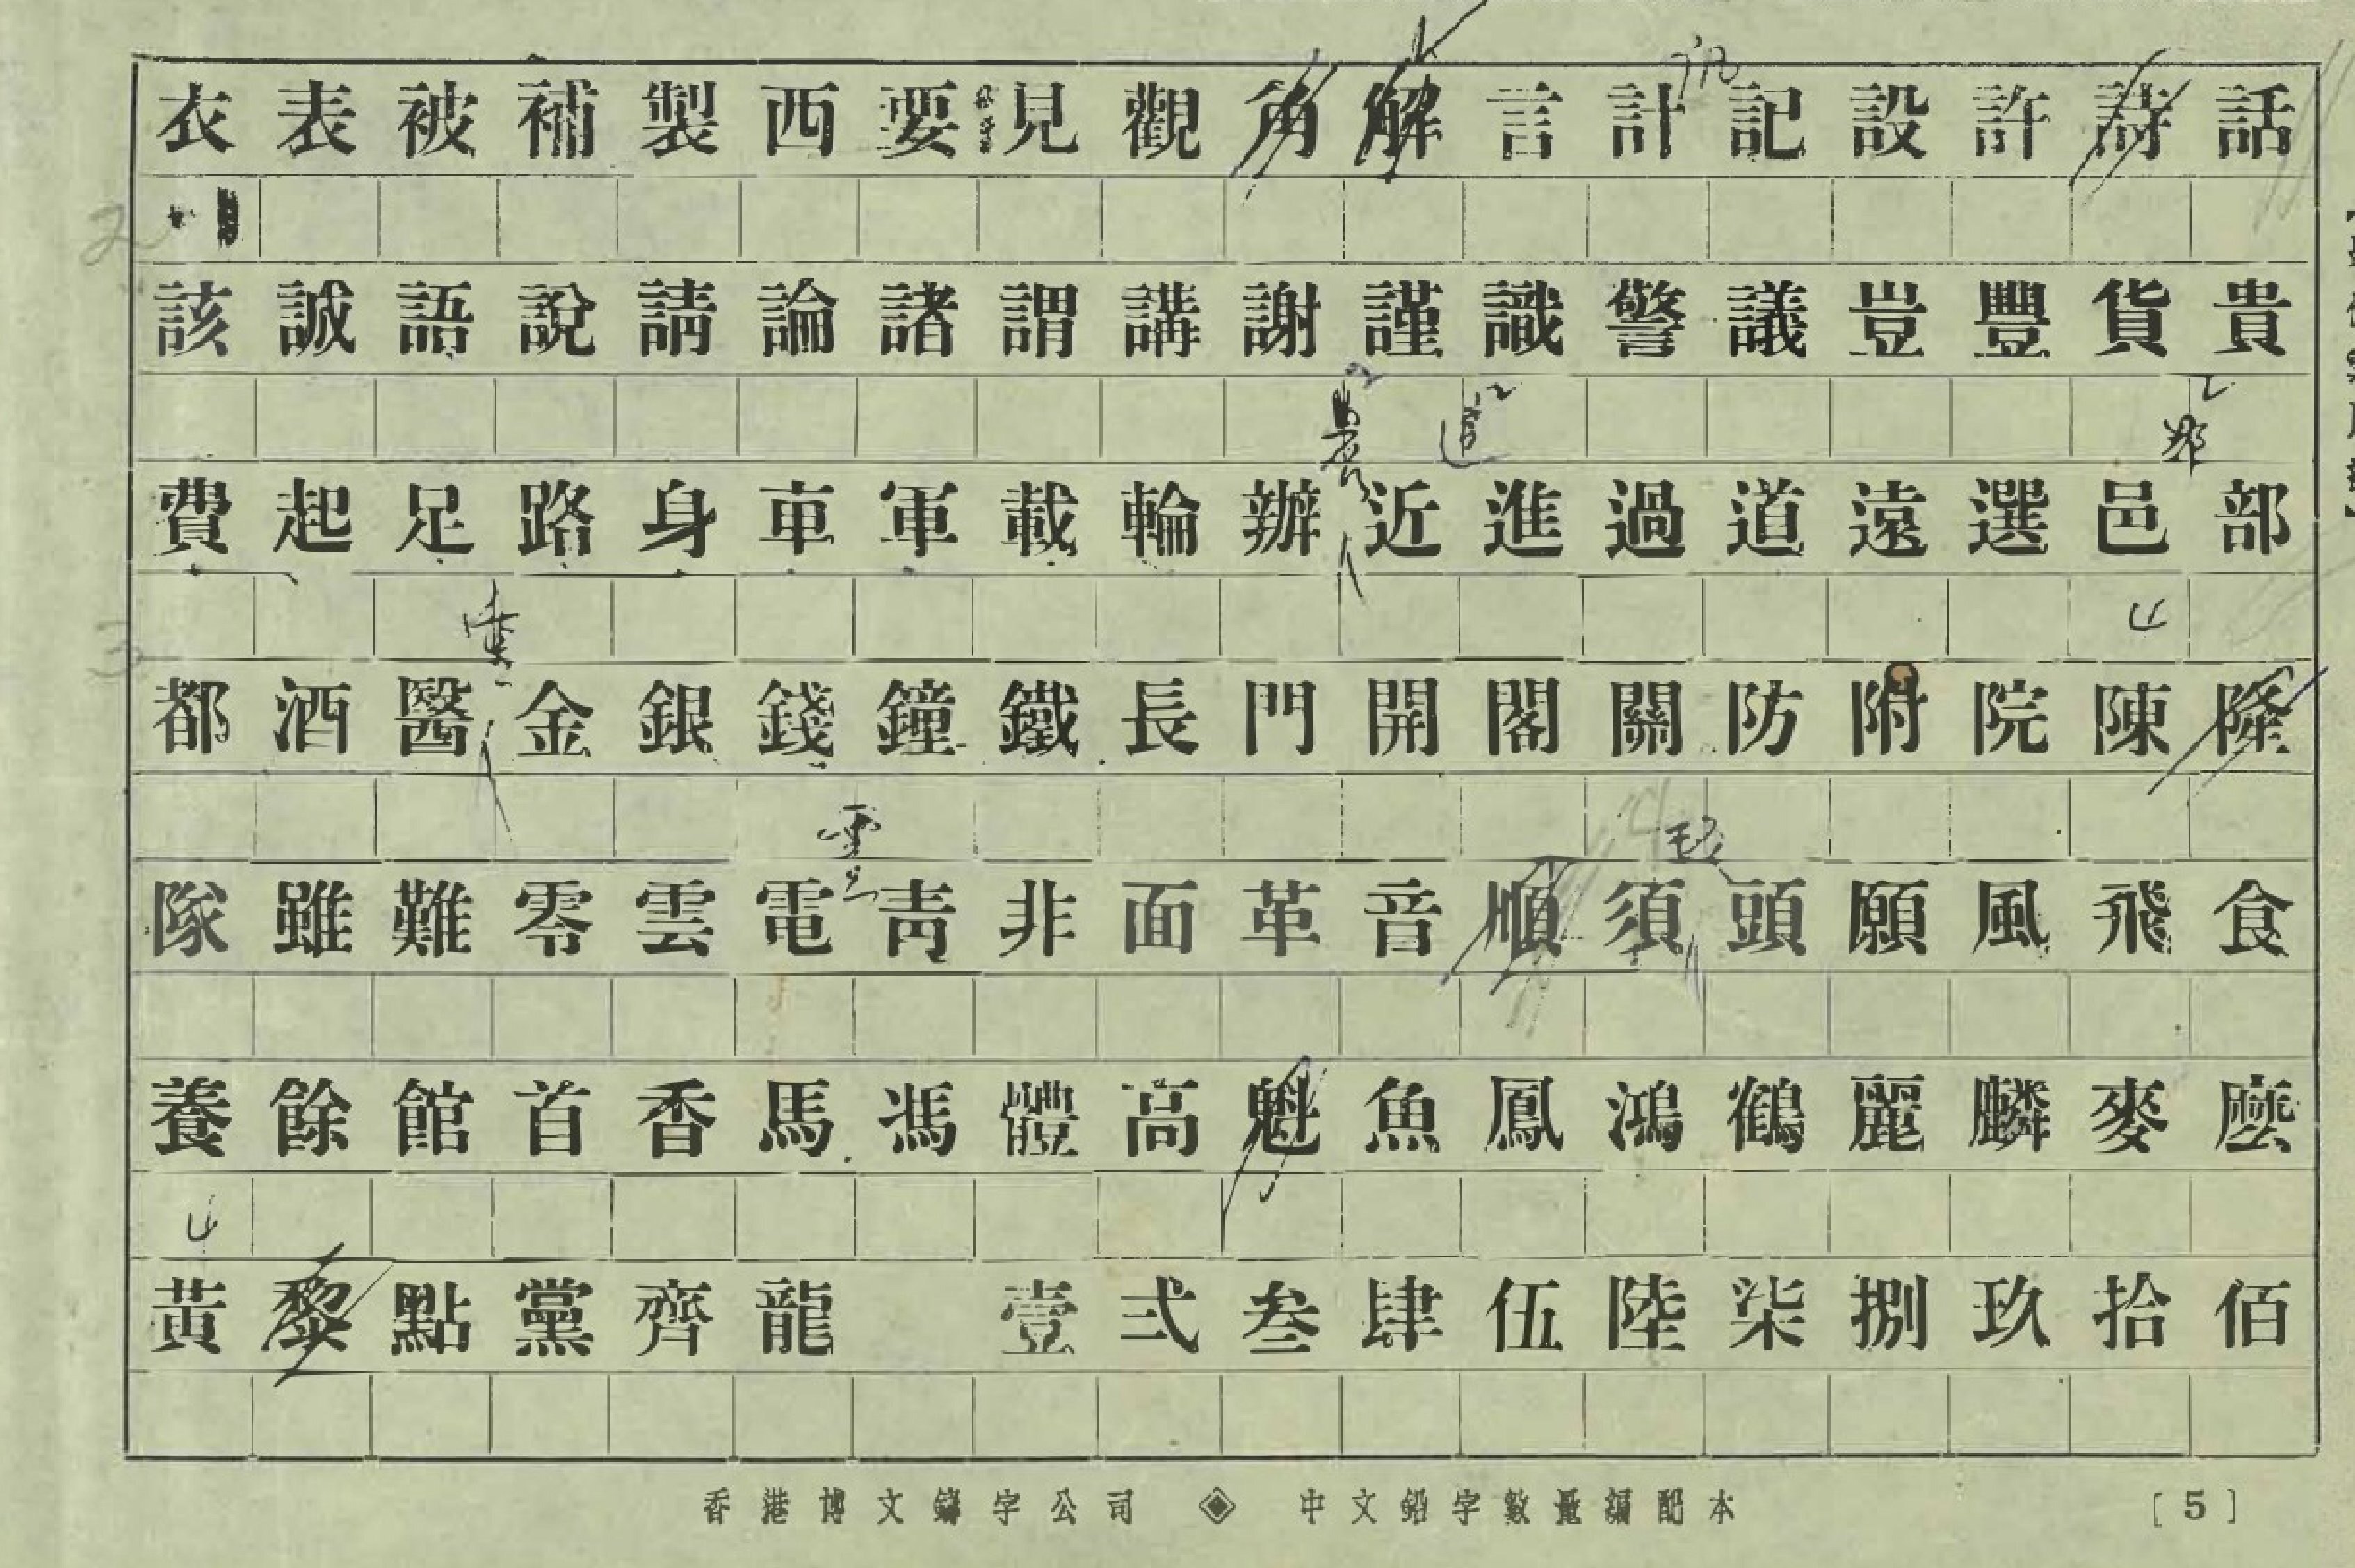 衣表被補製西要見觀角解言計記設許詩話
該誠語說請論諸謂講謝謹識警議豈豐貨貴
費起足路身車軍載輪辦近進過道遠選邑部
都酒醫金銀錢鐘鐵長門開閣關防附院陳隆
隊雖難零雲電靑非面革音順須頭願風飛食
養餘館首香馬馮體高魁魚鳳鴻鶴麗麟麥麽
黃黎點黨齊龍 壹弍叁肆伍陸柒捌玖拾佰
香港博文鑄字公司 ◈ 中文鉛字數量編配本 [5]